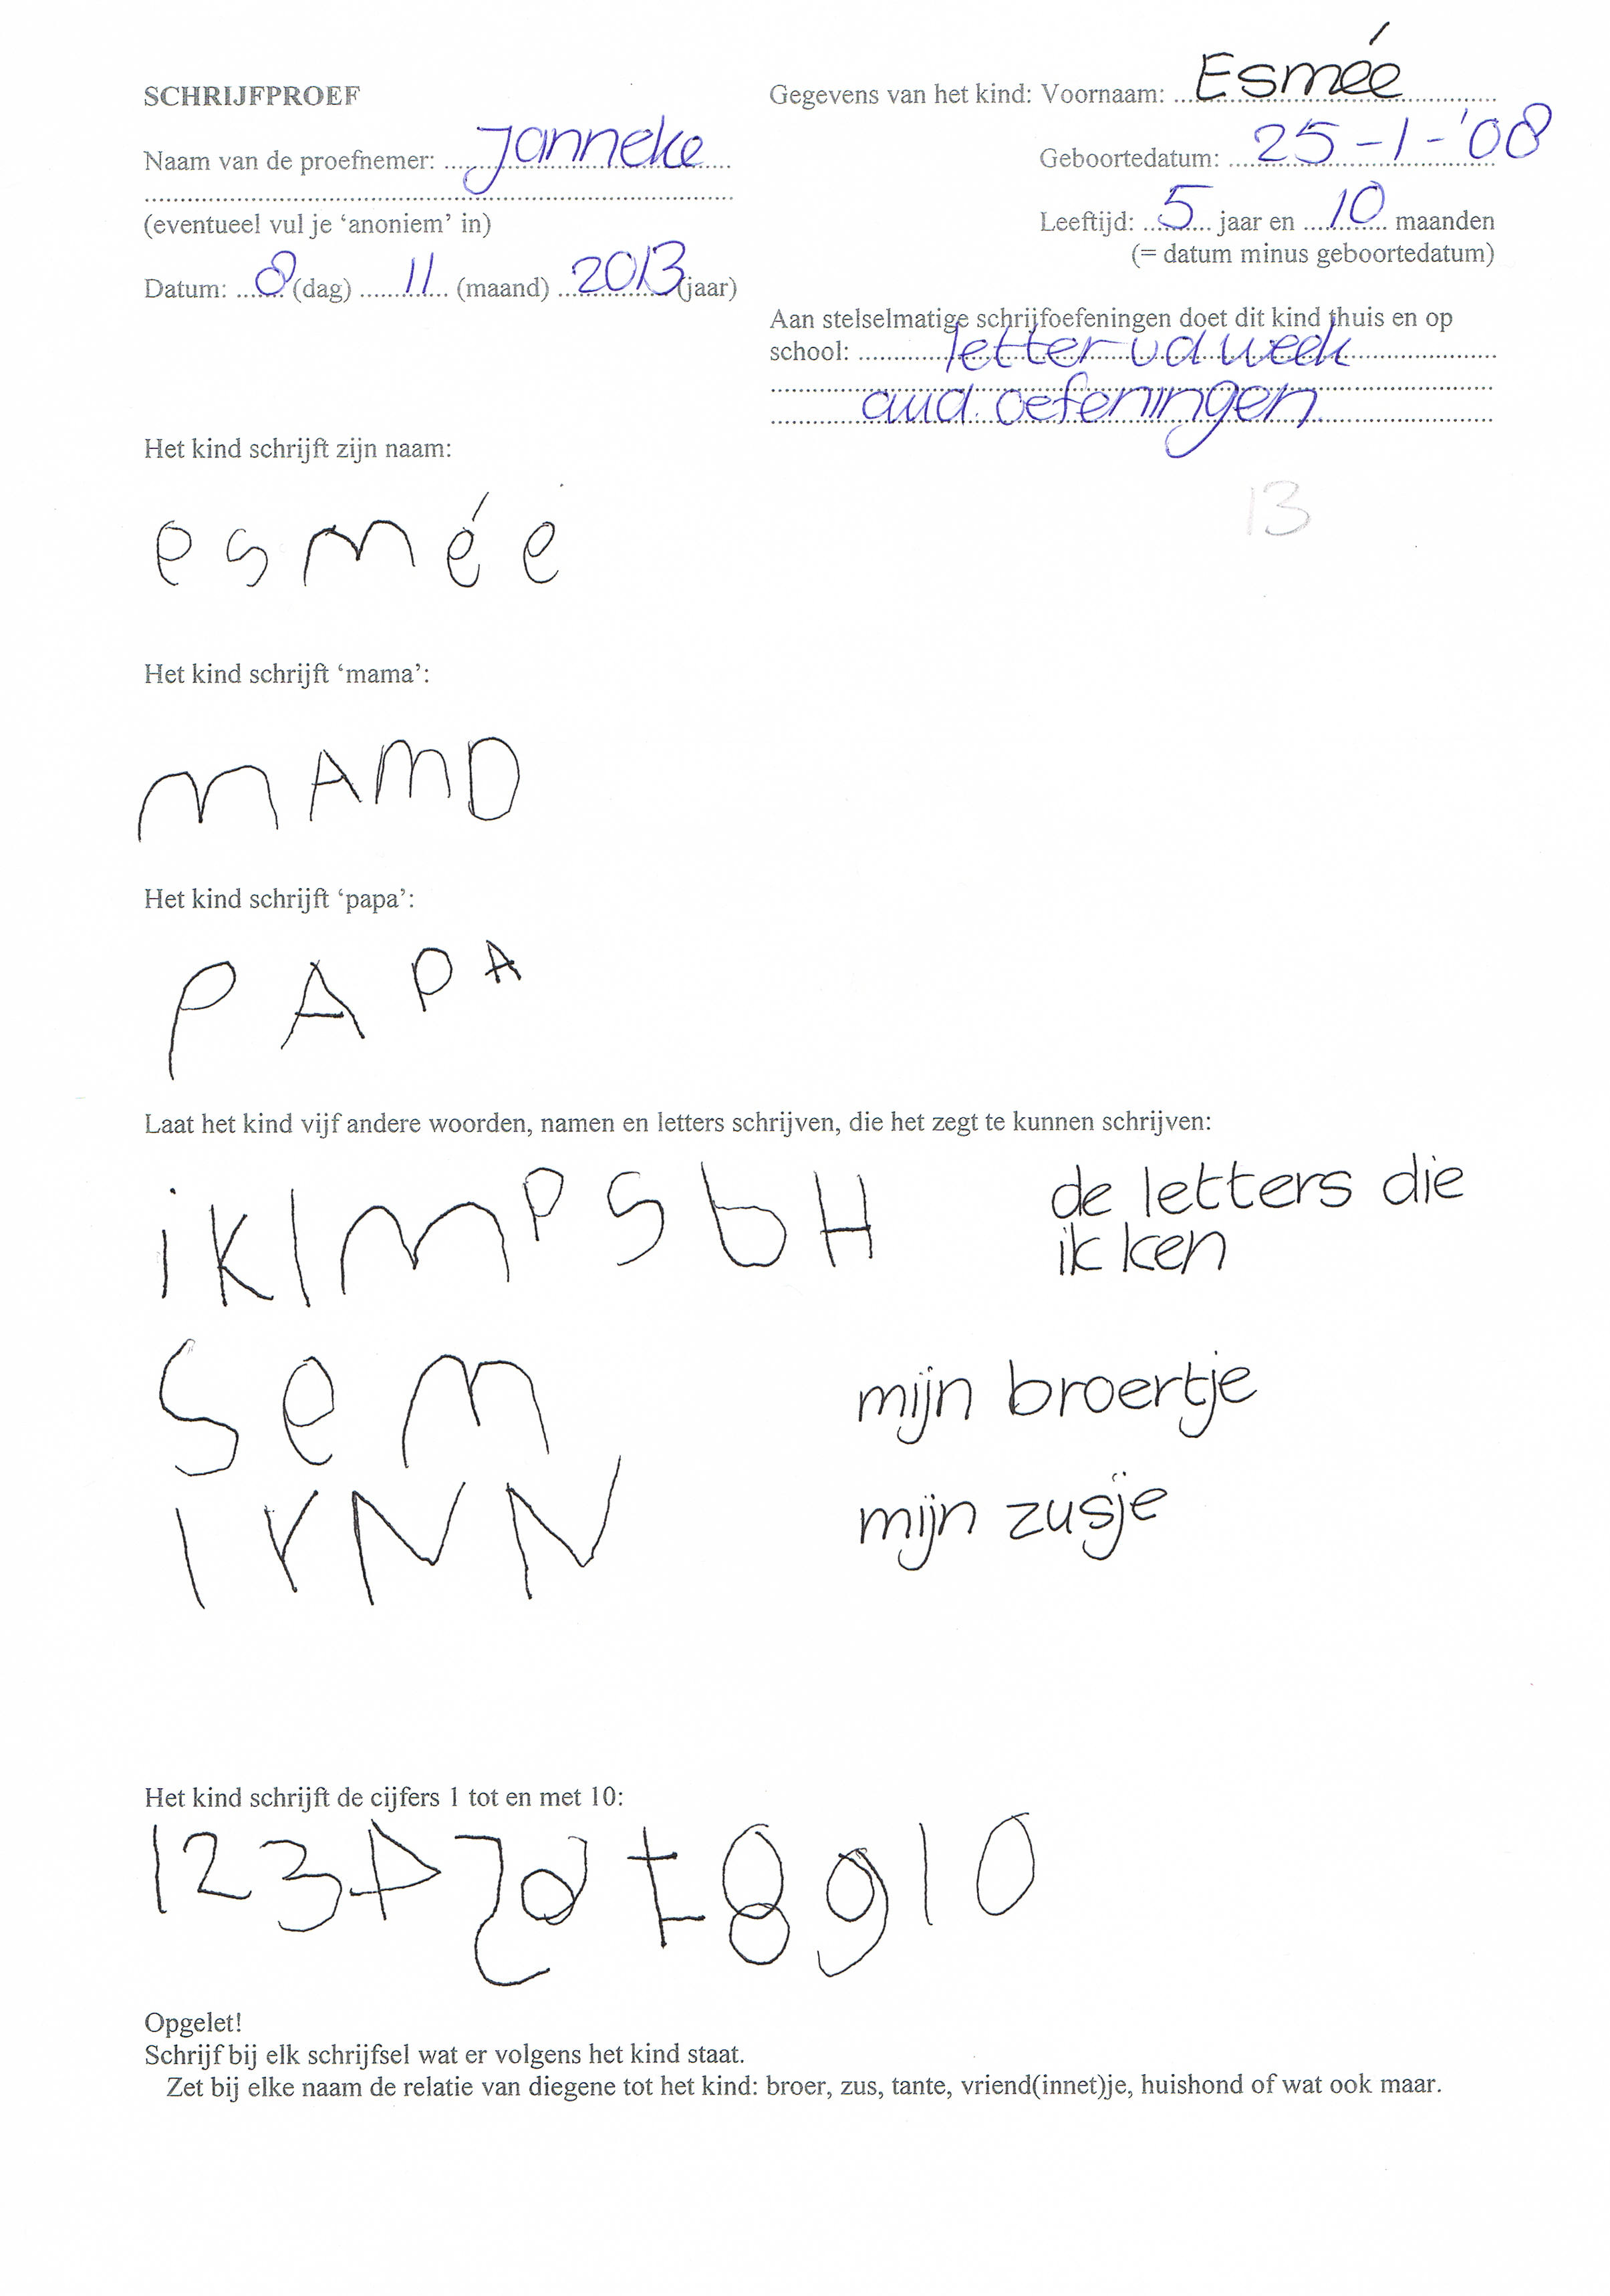 SCHRIJFPROEF
Naam van de proefnemer: Janneke
(eventueel vul je ‘anoniem’ in)
Datum: 8 (dag) 11 (maand) 2013 (jaar)
Gegevens van het kind: Voornaam: Esmée
Geboortedatum: 25-1-'08
Leeftijd: 5 jaar en 10 maanden
(= datum minus geboortedatum)
Aan stelselmatige schrijfoefeningen doet dit kind thuis en op
school: letter vd week
aud. oefeningen
13
Het kind schrijft zijn naam:
esmée
Het kind schrijft ‘mama’:
mAmD
Het kind schrijft ‘papa’:
PAPA
Laat het kind vijf andere woorden, namen en letters schrijven, die het zegt te kunnen schrijven:
iklmpsbH de letters die
ik ken
Sem mijn broertje
lYNN mijn zusje
Het kind schrijft de cijfers 1 tot en met 10:
1 2 3 4 5 6 7 8 9 10
Opgelet!
Schrijf bij elk schrijfsel wat er volgens het kind staat.
Zet bij elke naam de relatie van diegene tot het kind: broer, zus, tante, vriend(innet)je, huishond of wat ook maar.